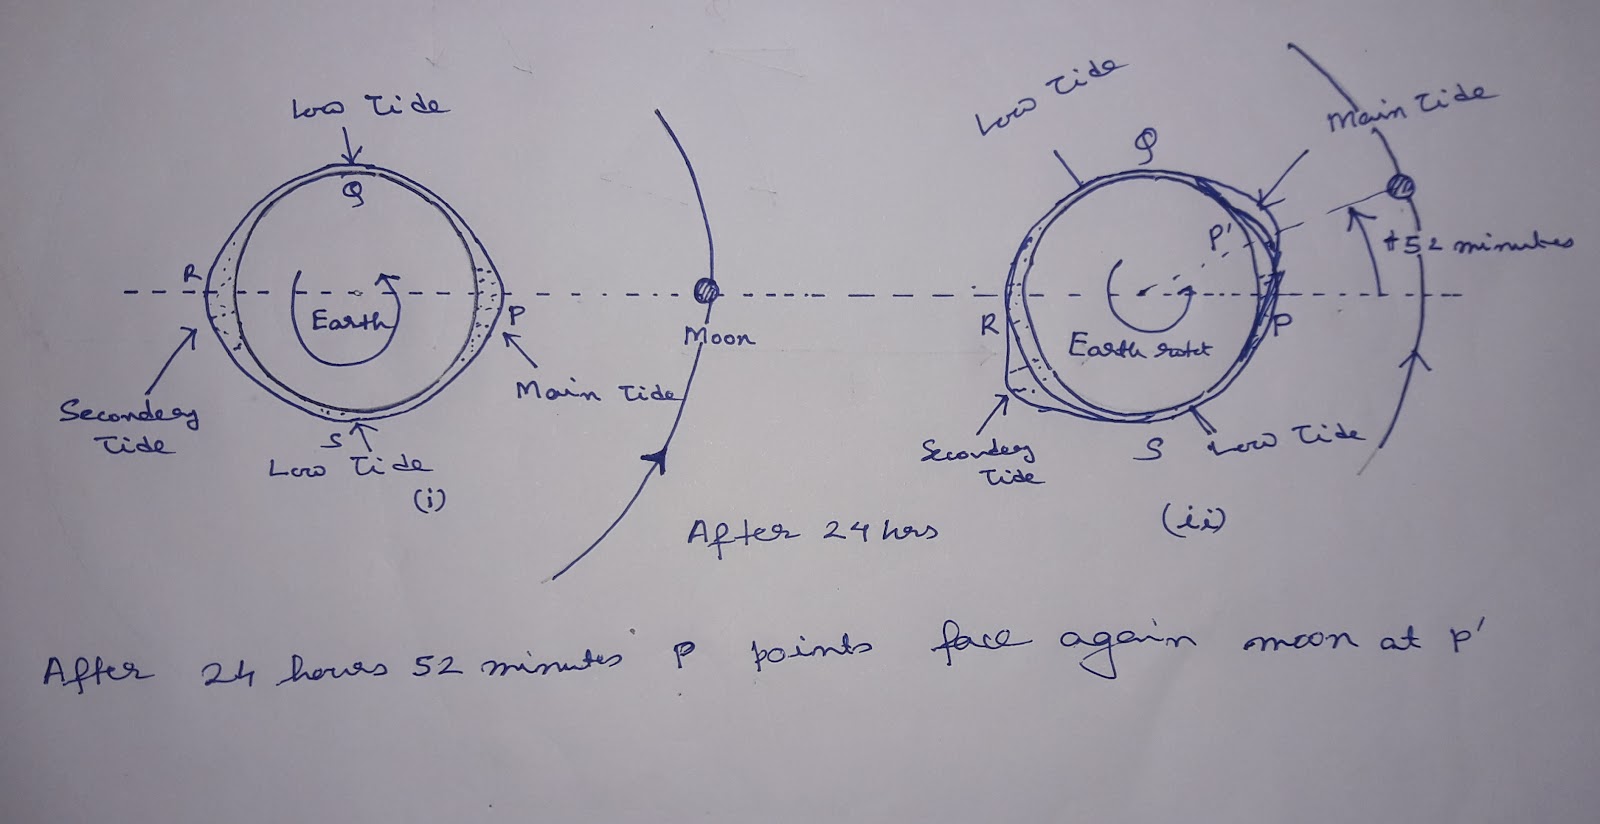 Low Tide
Q
R
Earth
P
Moon
Main Tide
Secondery
Tide
S
Low Tide
(i)
Low Tide
Main Tide
Q
P'
+52 minutes
R
P
Earth rotet
Secondery
Tide
S
Low Tide
(ii)
After 24 hrs
After 24 hours 52 minutes P points face again moon at P'